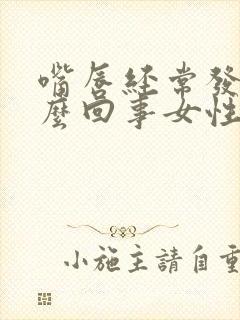 嘴唇經常發
麼回事女性
小施主請自重